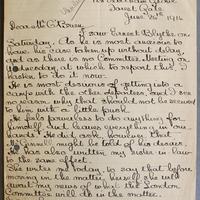 June 20th 1916
Dear Mr O'Brien,
I saw Ernest Blythe on
Saturday. As he is most anxious to
have his case taken up without delay,
and as there is no Committee Meeting on
Tuesday at which to report this I
hasten to do it now.
He is most desirous of getting into a
camp with the other deportees, and I see
no reason why that should not be secured
to him with a little push.
He feels powerless to do anything for
himself, and leaves everything in our
hands. He did ask, however, that
might be told of his desire.
I has also written my sister in law to
the same effect.
She wrote me today to say that before
moving in the matter, herself, she will
await my news of what the London
Committee will do in the matter.